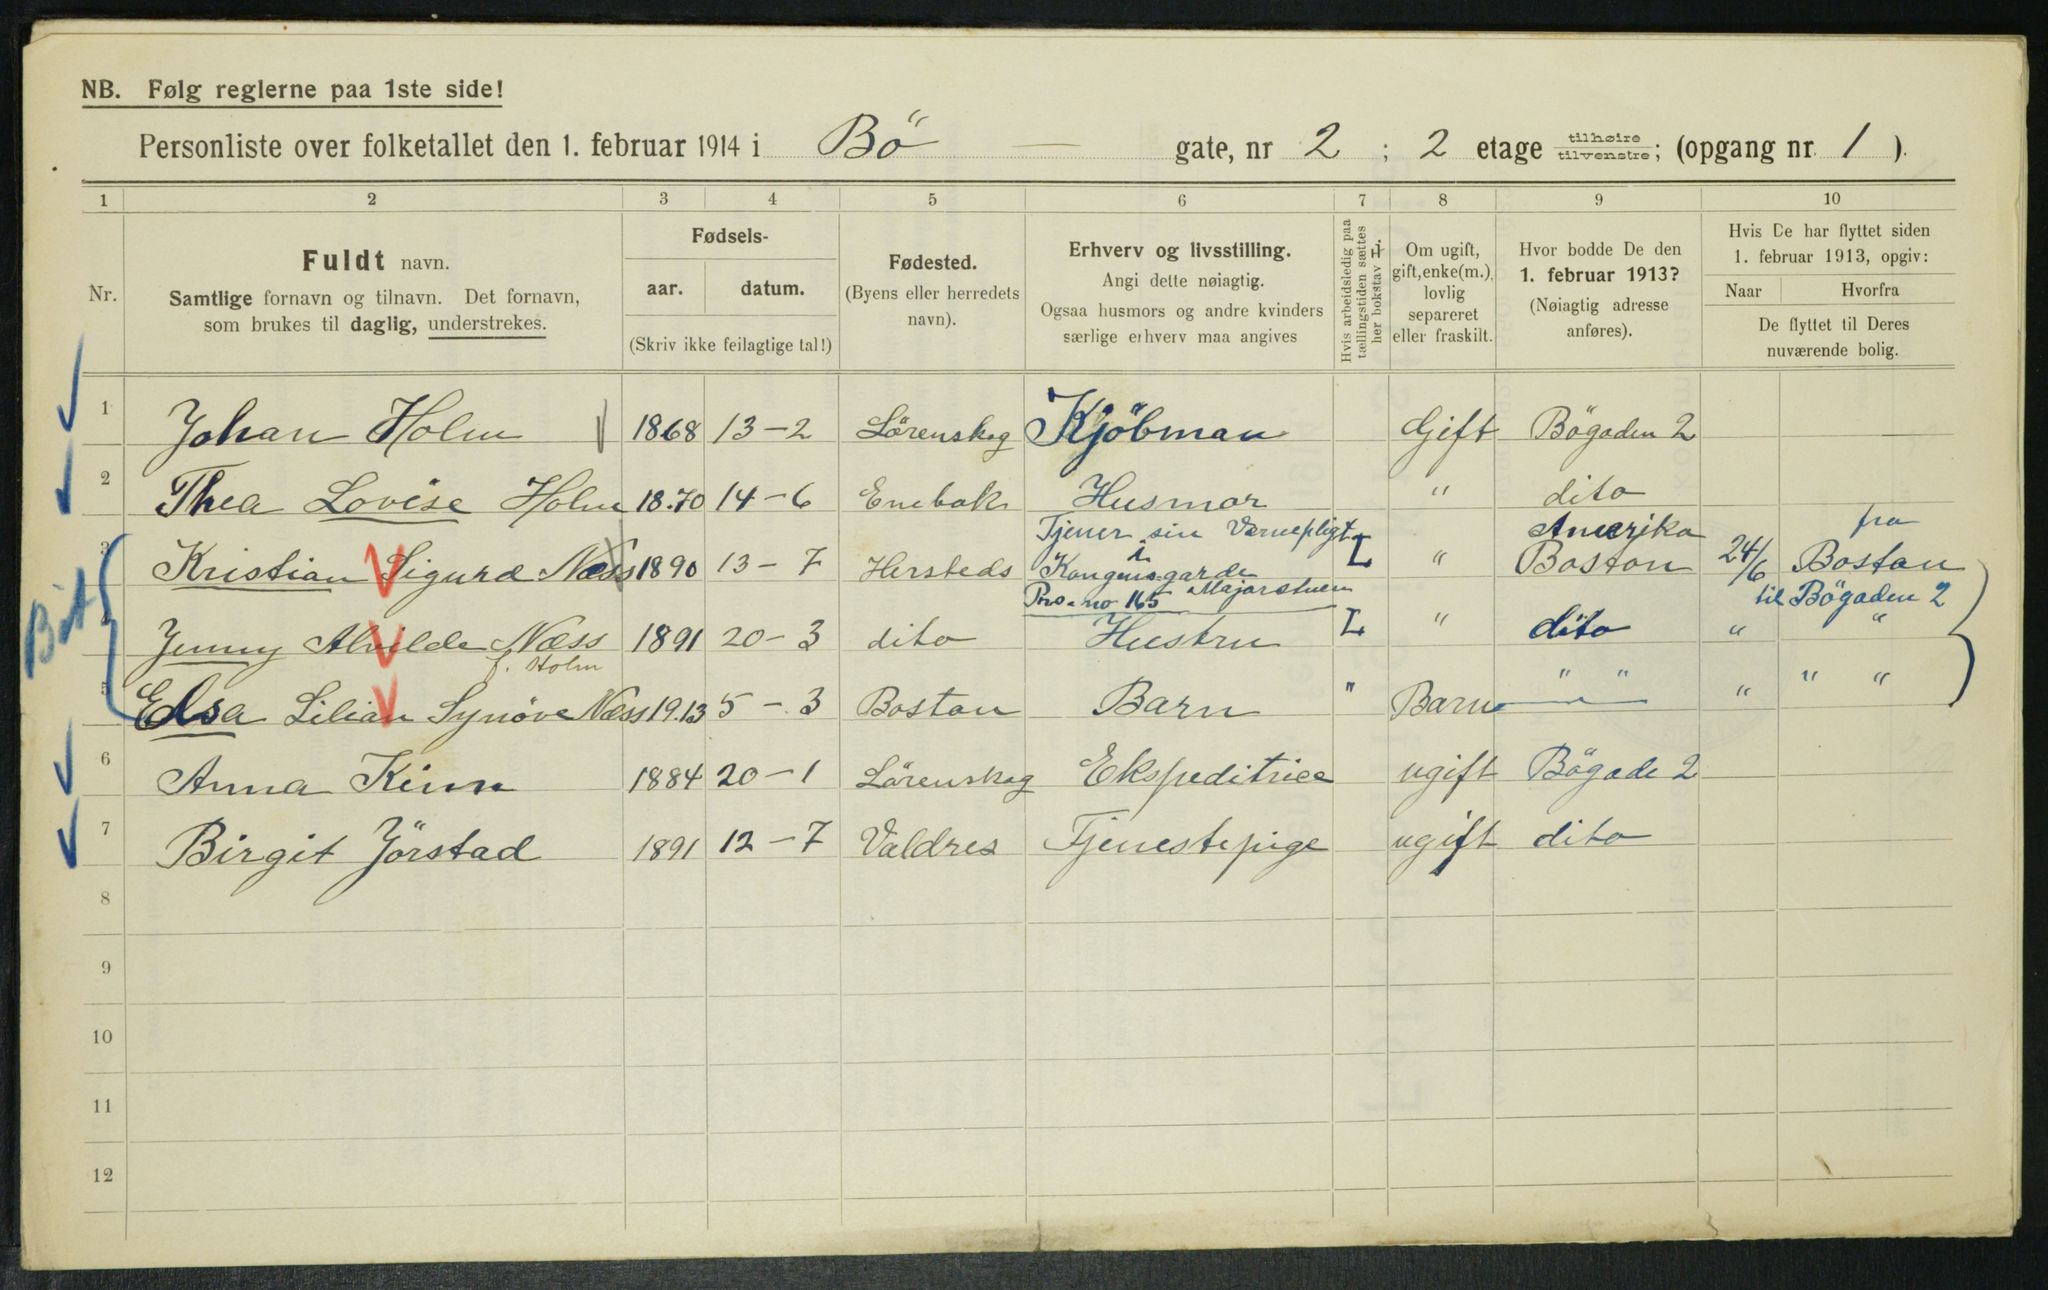 NB. Følg reglerne paa 1ste side!
Personliste over folketallet den 1. februar 1914 i Bö — gate, nr 2 ; 2 etage tilhøire tilvenstre; (opgang nr. 1 ).
1 2 3 4 5 6 7 8 9 10
Nr.
Fuldt navn.
Samtlige fornavn og tilnavn. Det fornavn,
som brukes til daglig, understrekes.
Fødsels-
aar. datum.
(Skriv ikke feilagtige tal!)
Fødested.
(Byens eller herredets
navn).
Erhverv og livsstilling.
Angi dette nøiagtig.
Ogsaa husmors og andre kvinders
særlige erhverv maa angives
Hvis arbeidsledig paa
tællingstiden sættes
her bokstav L.
Om ugift,
gift, enke(m.),
lovlig
separeret
eller fraskilt.
Hvor bodde De den
1. februar 1913?
(Nøiagtig adresse
anføres).
Hvis De har flyttet siden
1. februar 1913, opgiv:
Naar Hvorfra
De flyttet til Deres
nuværende bolig.
1 Johan Holm 1868 13-2 Lörenskog Kjöbman Gift Bögaden 2
2 Thea Lovise Holm 18.70 14-6 Enebak Husmor " dito
Tjener sin Værnepligt Amerika fra
3 Kristian Sigurd Næss 1890 13-7 Hersteds i Kongensgarde L " Boston 24/6 Boston
Pro. no 165 Majorstuen til Bögaden 2
4 Jenny Alvilde Næss 1891 20-3 dito Hustru L " dito " "
f. Holm
5 Elsa Lilian Synöve Næss 19.13 5-3 Boston Barn " Barn " " " " "
6 Anna Kinn 1884 20-1 Lörenskog Ekspeditrice ugift Bögade 2
7 Birgit Jörstad 1891 12-7 Valdres Tjenestepige ugift dito
8
9
10
11
12